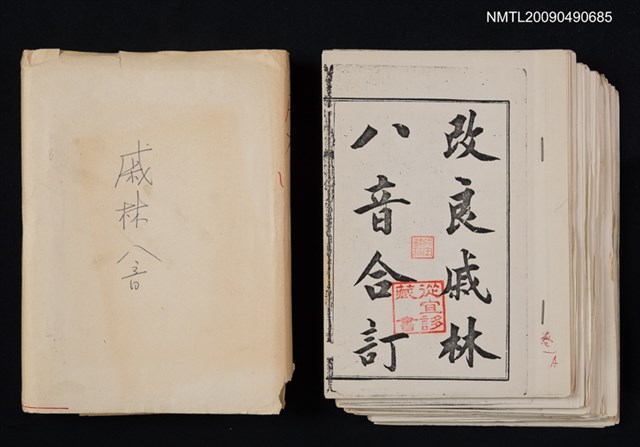 NMTL20090490685
戚林八音
改良戚林
八音合訂
藏書
卷一A